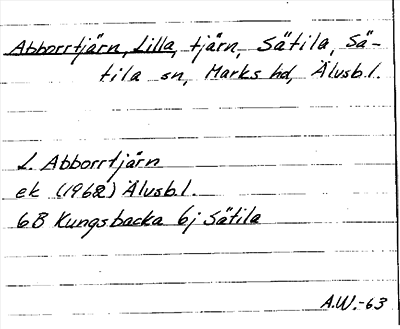 Abborrtjärn, Lilla, tjärn, Sätila, Sä-
tila sn, Marks hd, Älvsb.l.
L. Abborrtjärn
ek (1962) Älvsb.l.
6B Kungsbacka 6j Sätila
A.W.-63